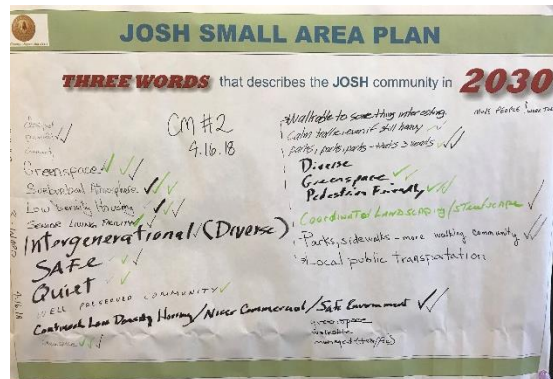 JOSH SMALL AREA PLAN
THREE WORDS that describes the JOSH community in 2030
CM #2
9.16.18
Greenspace
Suburban Atmosphere
Low Density Housing
SENIOR LIVING FACILITY
Intergenerational (Diverse)
SAFE
Quiet
WELL PRESERVED COMMUNITY
Continued Low Density Housing / Nicer Commercial / Safe Environment
Walkable to something interesting.
MORE PEOPLE
Calm traffic even if still heavy
parks, parks, parks - that's 3 words
Diverse
Greenspace
Pedestrian Friendly
COORDINATED LANDSCAPING / STREETSCAPE
Parks, sidewalks - more walking community
Local public transportation
greenspace
walkable